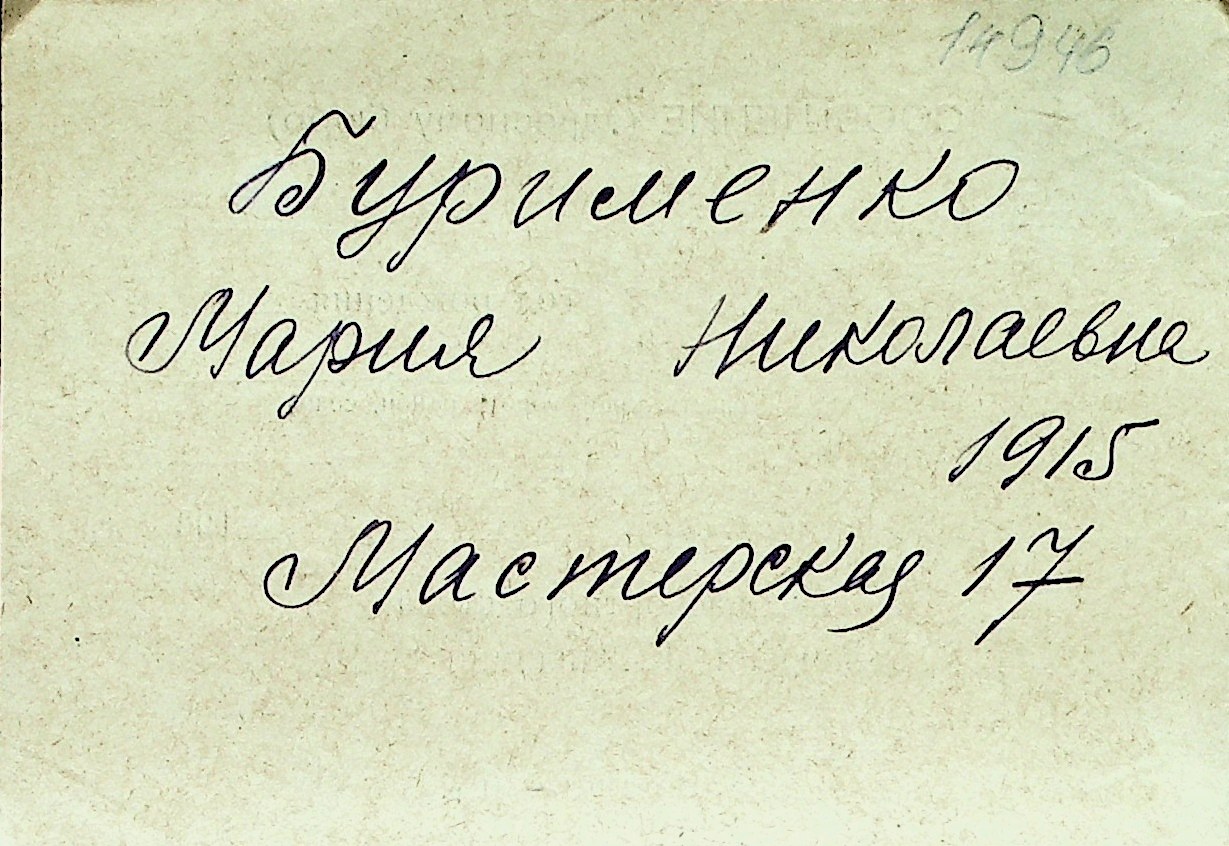 14946
Бурименко
Мария Николаевна
1915
Мастерская 17